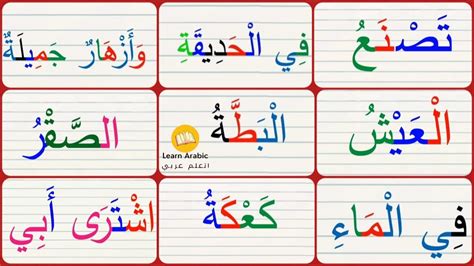 تَصْنَعُ
فِي الْحَدِيقَةِ
وَأَزْهَارٌ جَمِيلَةٌ
الْعَيْشُ
الْبَطَّةُ
الصَّقْرُ
Learn Arabic
اتعلم عربي
فِي الْمَاءِ
كَعْكَةُ
اشْتَرَى أَبِي